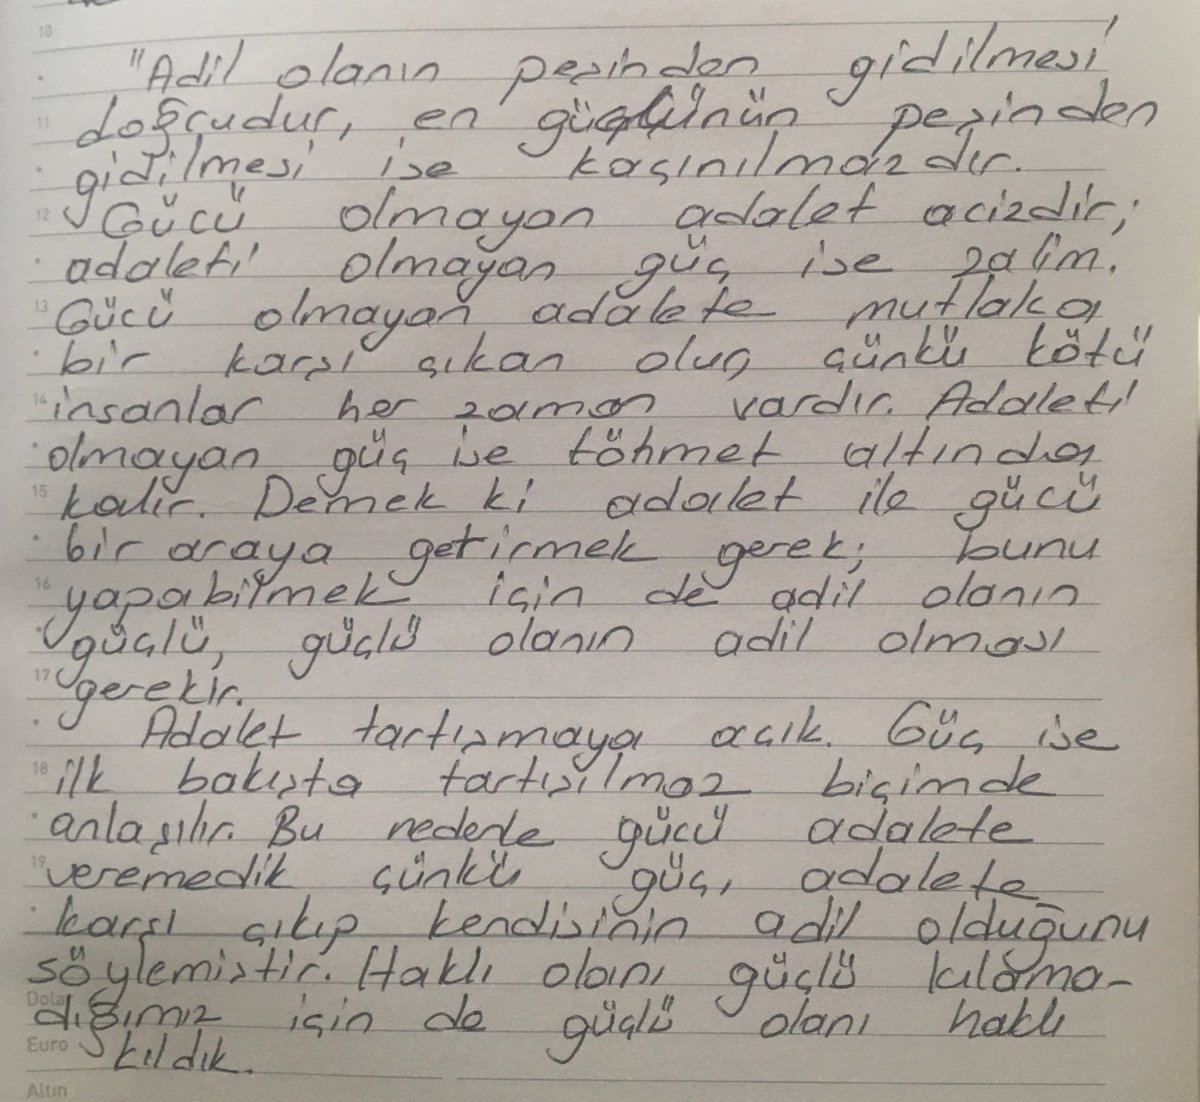 10
"Adil olanın peşinden gidilmesi
11 doğrudur, en güçlünün peşinden
gidilmesi ise kaçınılmazdır.
12 Gücü olmayan adalet acizdir;
adaleti olmayan güç ise zalim.
13 Gücü olmayan adalete mutlaka
bir karşı çıkan olur, çünkü kötü
14 insanlar her zaman vardır. Adaleti
olmayan güç ise töhmet altında
15 kalır. Demek ki adalet ile gücü
bir araya getirmek gerek; bunu
16 yapabilmek için de adil olanın
güçlü, güçlü olanın adil olması
17 gerekir.
Adalet tartışmaya açık. Güç ise
18 ilk bakışta tartışılmaz biçimde
anlaşılır. Bu nedenle gücü adalete
19 veremedik çünkü güç, adalete
karşı çıkıp kendisinin adil olduğunu
söylemiştir. Haklı olanı güçlü kılama-
Dolar dığımız için de güçlü olanı haklı
Euro kıldık.
Altın